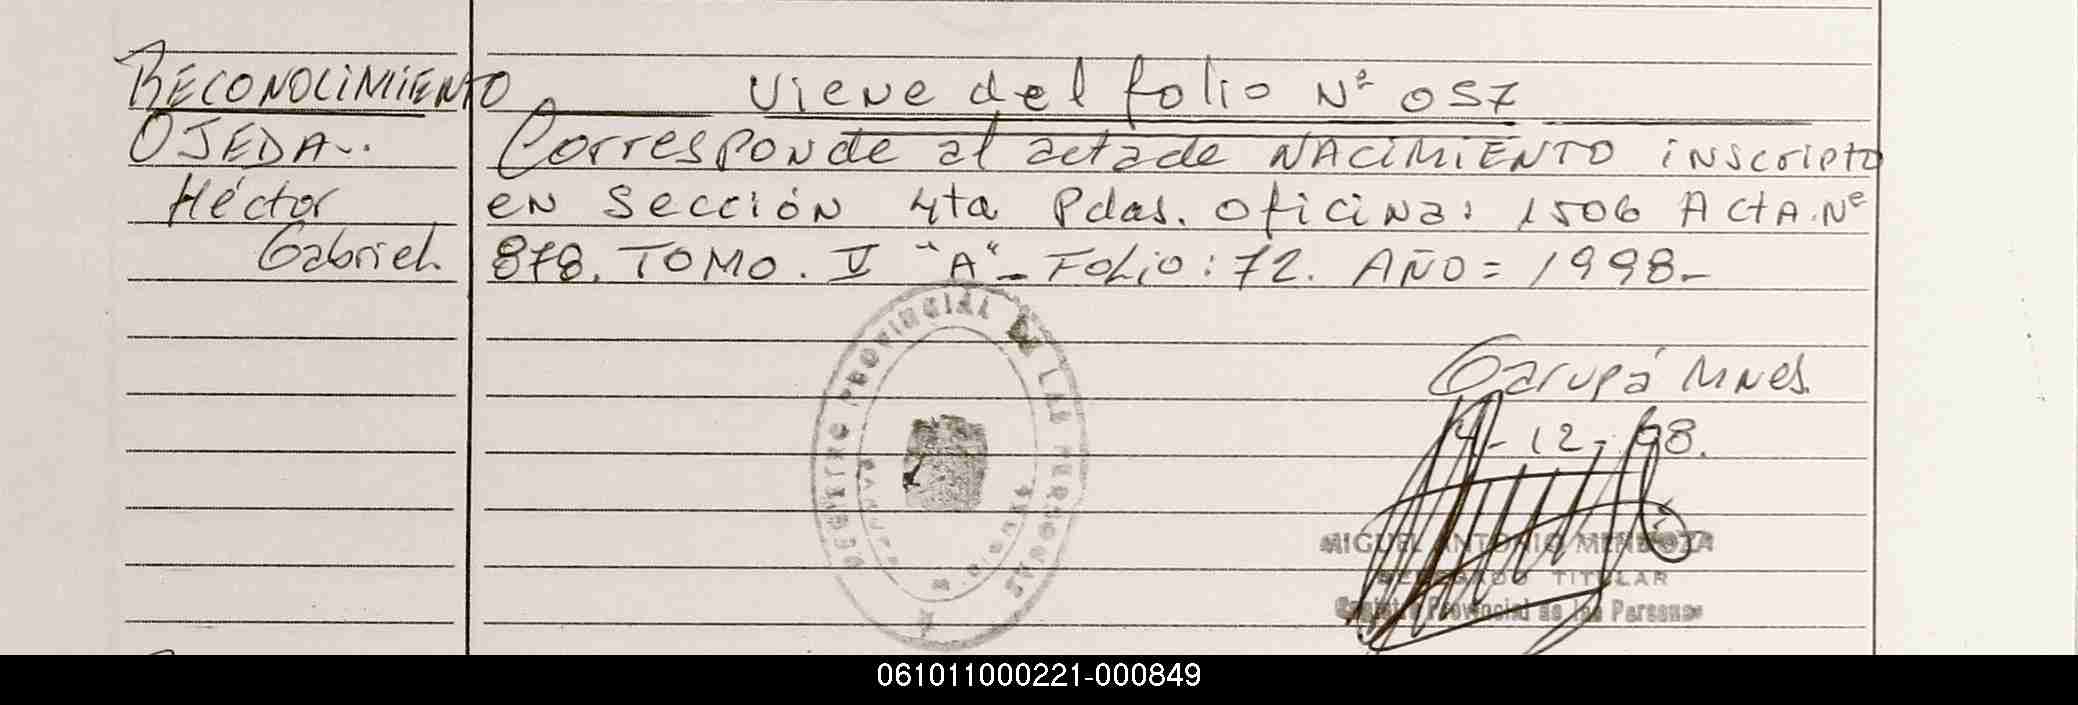 RECONOCIMIENTO
OJEDA..
Héctor
Gabriel.
Viene del folio Nº 057
Corresponde al acta de NACIMIENTO inscripto
en Sección 4ta Pdas. Oficina: 1506 ActA.Nº
878. TOMO. II "A"- Folio: 72. AÑO = 1998-
REGISTRO PROVINCIAL DE LAS PERSONAS
GARUPA
Garupá Mnes.
14-12-98.
MIGUEL ANTONIO MENDOZA
DELEGADO TITULAR
Registro Provincial de las Personas
061011000221-000849